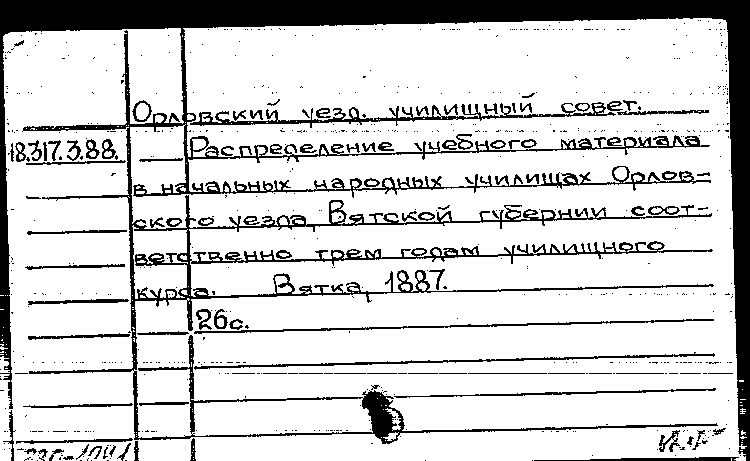 Орловский уезд. училищный совет.
18.317.3.88. Распределение учебного материала
в начальных народных училищах Орлов-
ского уезда, Вятской губернии соот-
ветственно трем годам училищного
курса. Вятка, 1887.
26с.